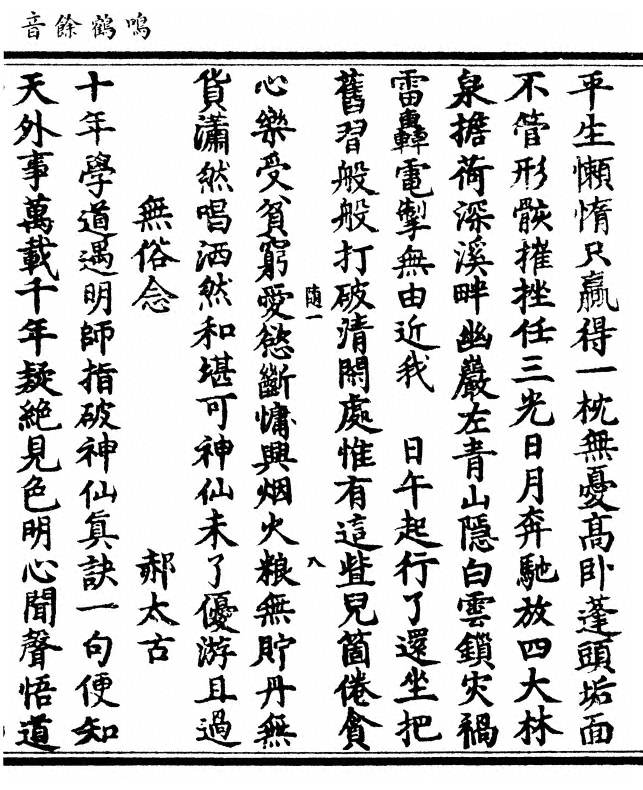 鳴鶴餘音
平生懶惰只贏得一枕無憂高卧蓬頭垢面
不管形骸摧挫任三光日月奔馳放四大林
泉擔荷深溪畔幽巖左青山隱白雲鎖灾禍
雷轟電掣無由近我　日午起行了還坐把
舊習般般打破清閑處惟有這些兒箇倦貪
隨一　八
心樂受貧窮愛慾斷慵興烟火粮無貯丹無
貨瀟然唱洒然和堪可神仙未了優游且過
無俗念　郝太古
十年學道遇明師指破神仙真訣一句便知
天外事萬載千年疑絶見色明心聞聲悟道